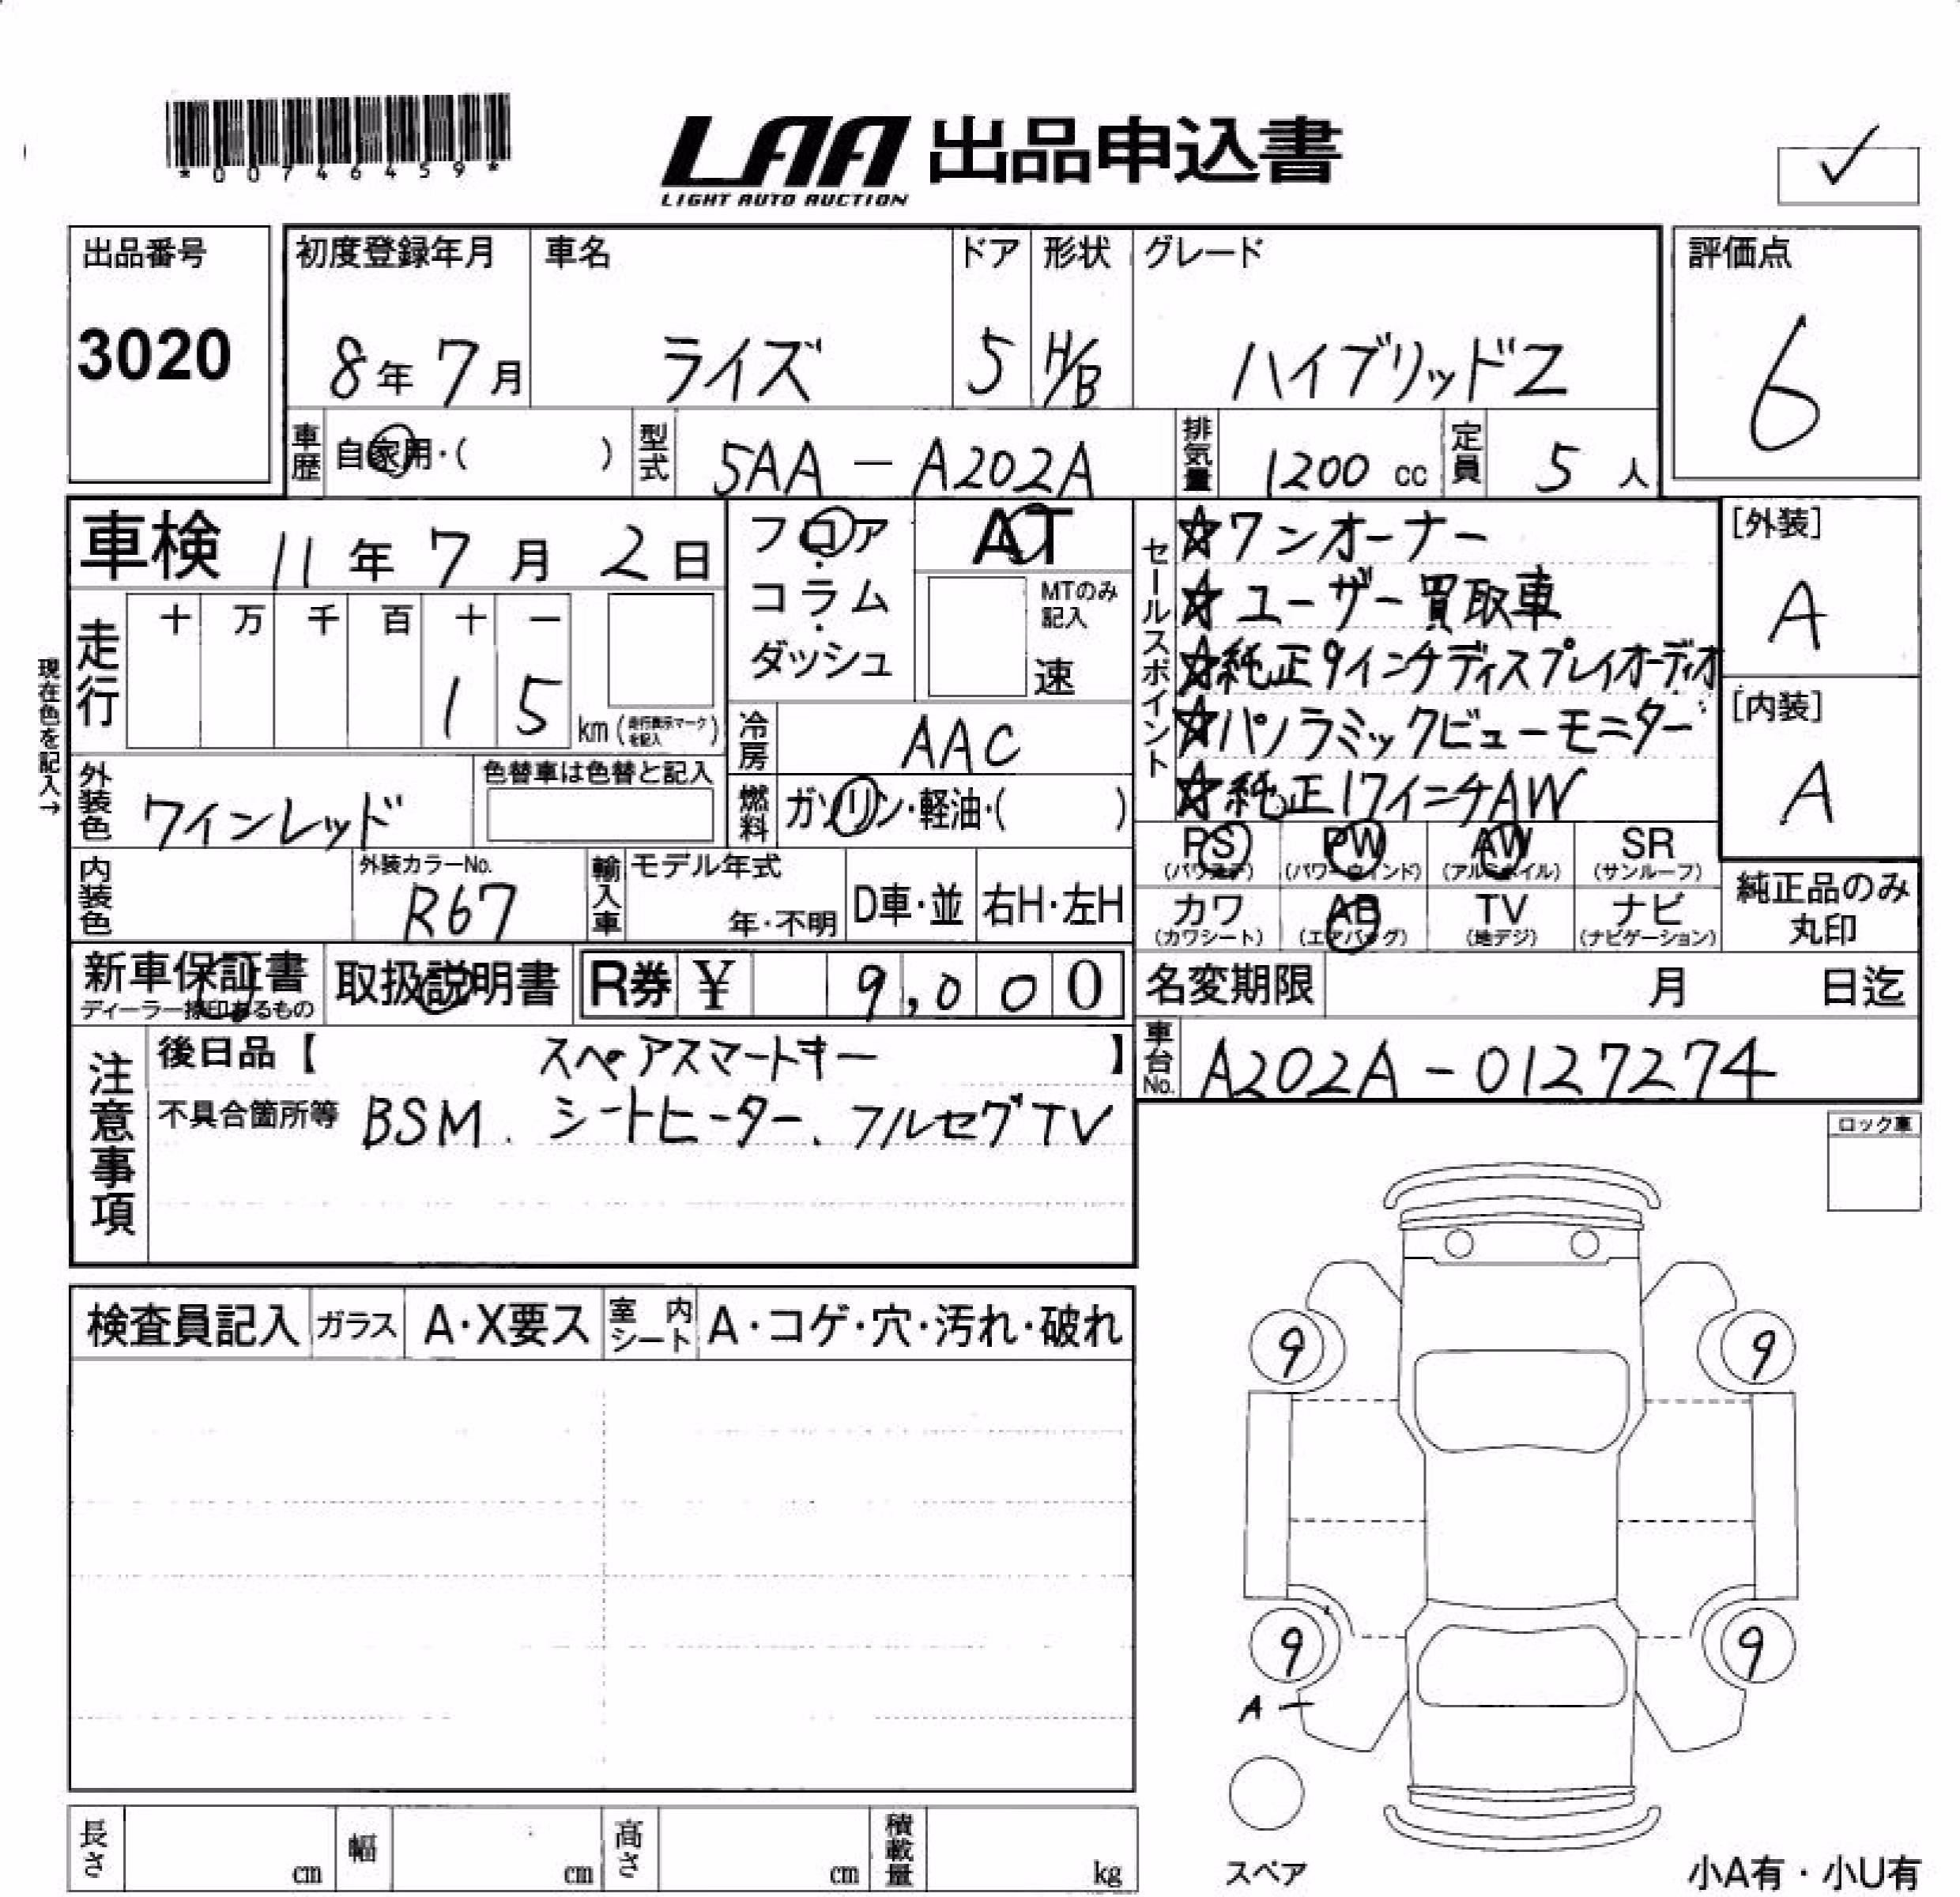 *00746459*
LAA 出品申込書
LIGHT AUTO AUCTION
✓
出品番号
3020
初度登録年月
8年7月
車名
ライズ
ドア
5
形状
H/B
グレード
ハイブリッドZ
評価点
6
車歴
自家用・( )
型式
5AA-A202A
排気量
1200 cc
定員
5人
車検 11年7月2日
フロア・コラム・ダッシュ
AT
MTのみ記入
速
セールスポイント
☆ワンオーナー
☆ユーザー買取車
☆純正9インチディスプレイオーディオ
☆パノラミックビューモニター
☆純正17インチAW
[外装]
A
[内装]
A
現在色を記入→
走行
十 万 千 百 十 一
1 5 km (走行表示マークを記入)
冷房
AAC
外装色
ワインレッド
色替車は色替と記入
燃料
ガソリン・軽油・( )
PS (パワステ)
PW (パワーウィンド)
AW (アルミホイル)
SR (サンルーフ)
カワ (カワシート)
AB (エアバッグ)
TV (地デジ)
ナビ (ナビゲーション)
純正品のみ丸印
内装色
外装カラーNo.
R67
輸入車
モデル年式
年・不明
D車・並
右H・左H
新車保証書
ディーラー捺印あるもの
取扱説明書
R券 ¥ 9,000
名変期限 月 日迄
車台No.
A202A-0127274
注意事項
後日品【 スペアスマートキー 】
不具合箇所等 BSM、シートヒーター、フルセグTV
ロック車
検査員記入
ガラス
A・X要ス
室内シート
A・コゲ・穴・汚れ・破れ
9 9
9 9
A
スペア
長さ cm
幅 cm
高さ cm
積載量 kg
小A有・小U有